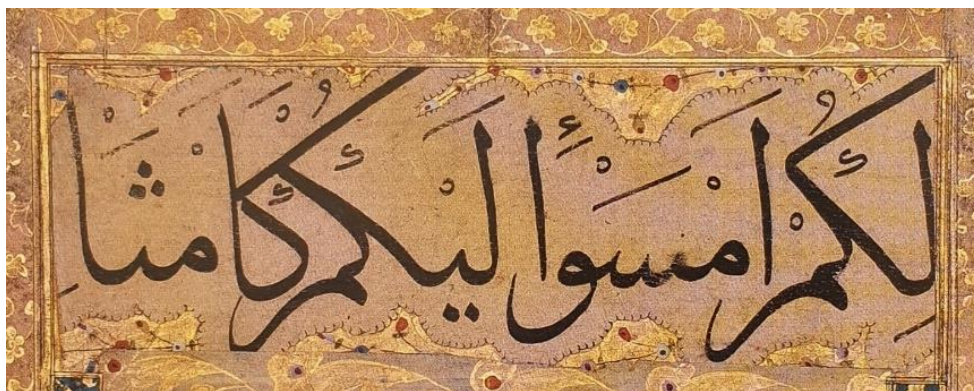 لكم امسوا ليكم كامثا